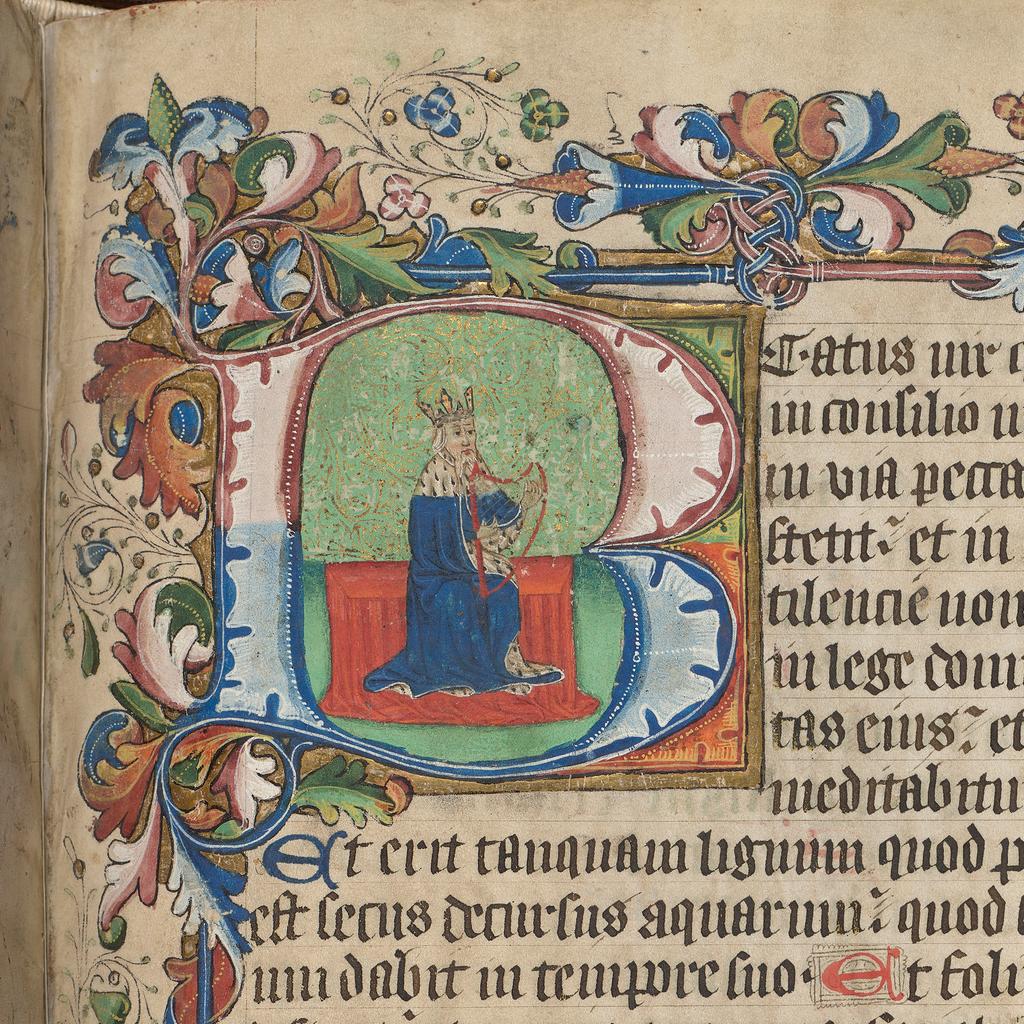 B
Eatus uir
in consilio
in via pecca
stetit: et in
tilencie non
in lege domi
tas eius: et
meditabitu
Et erit tanquam lignum quod p
est secus decursus aquarum: quod
um dabit in tempore suo. Et foli